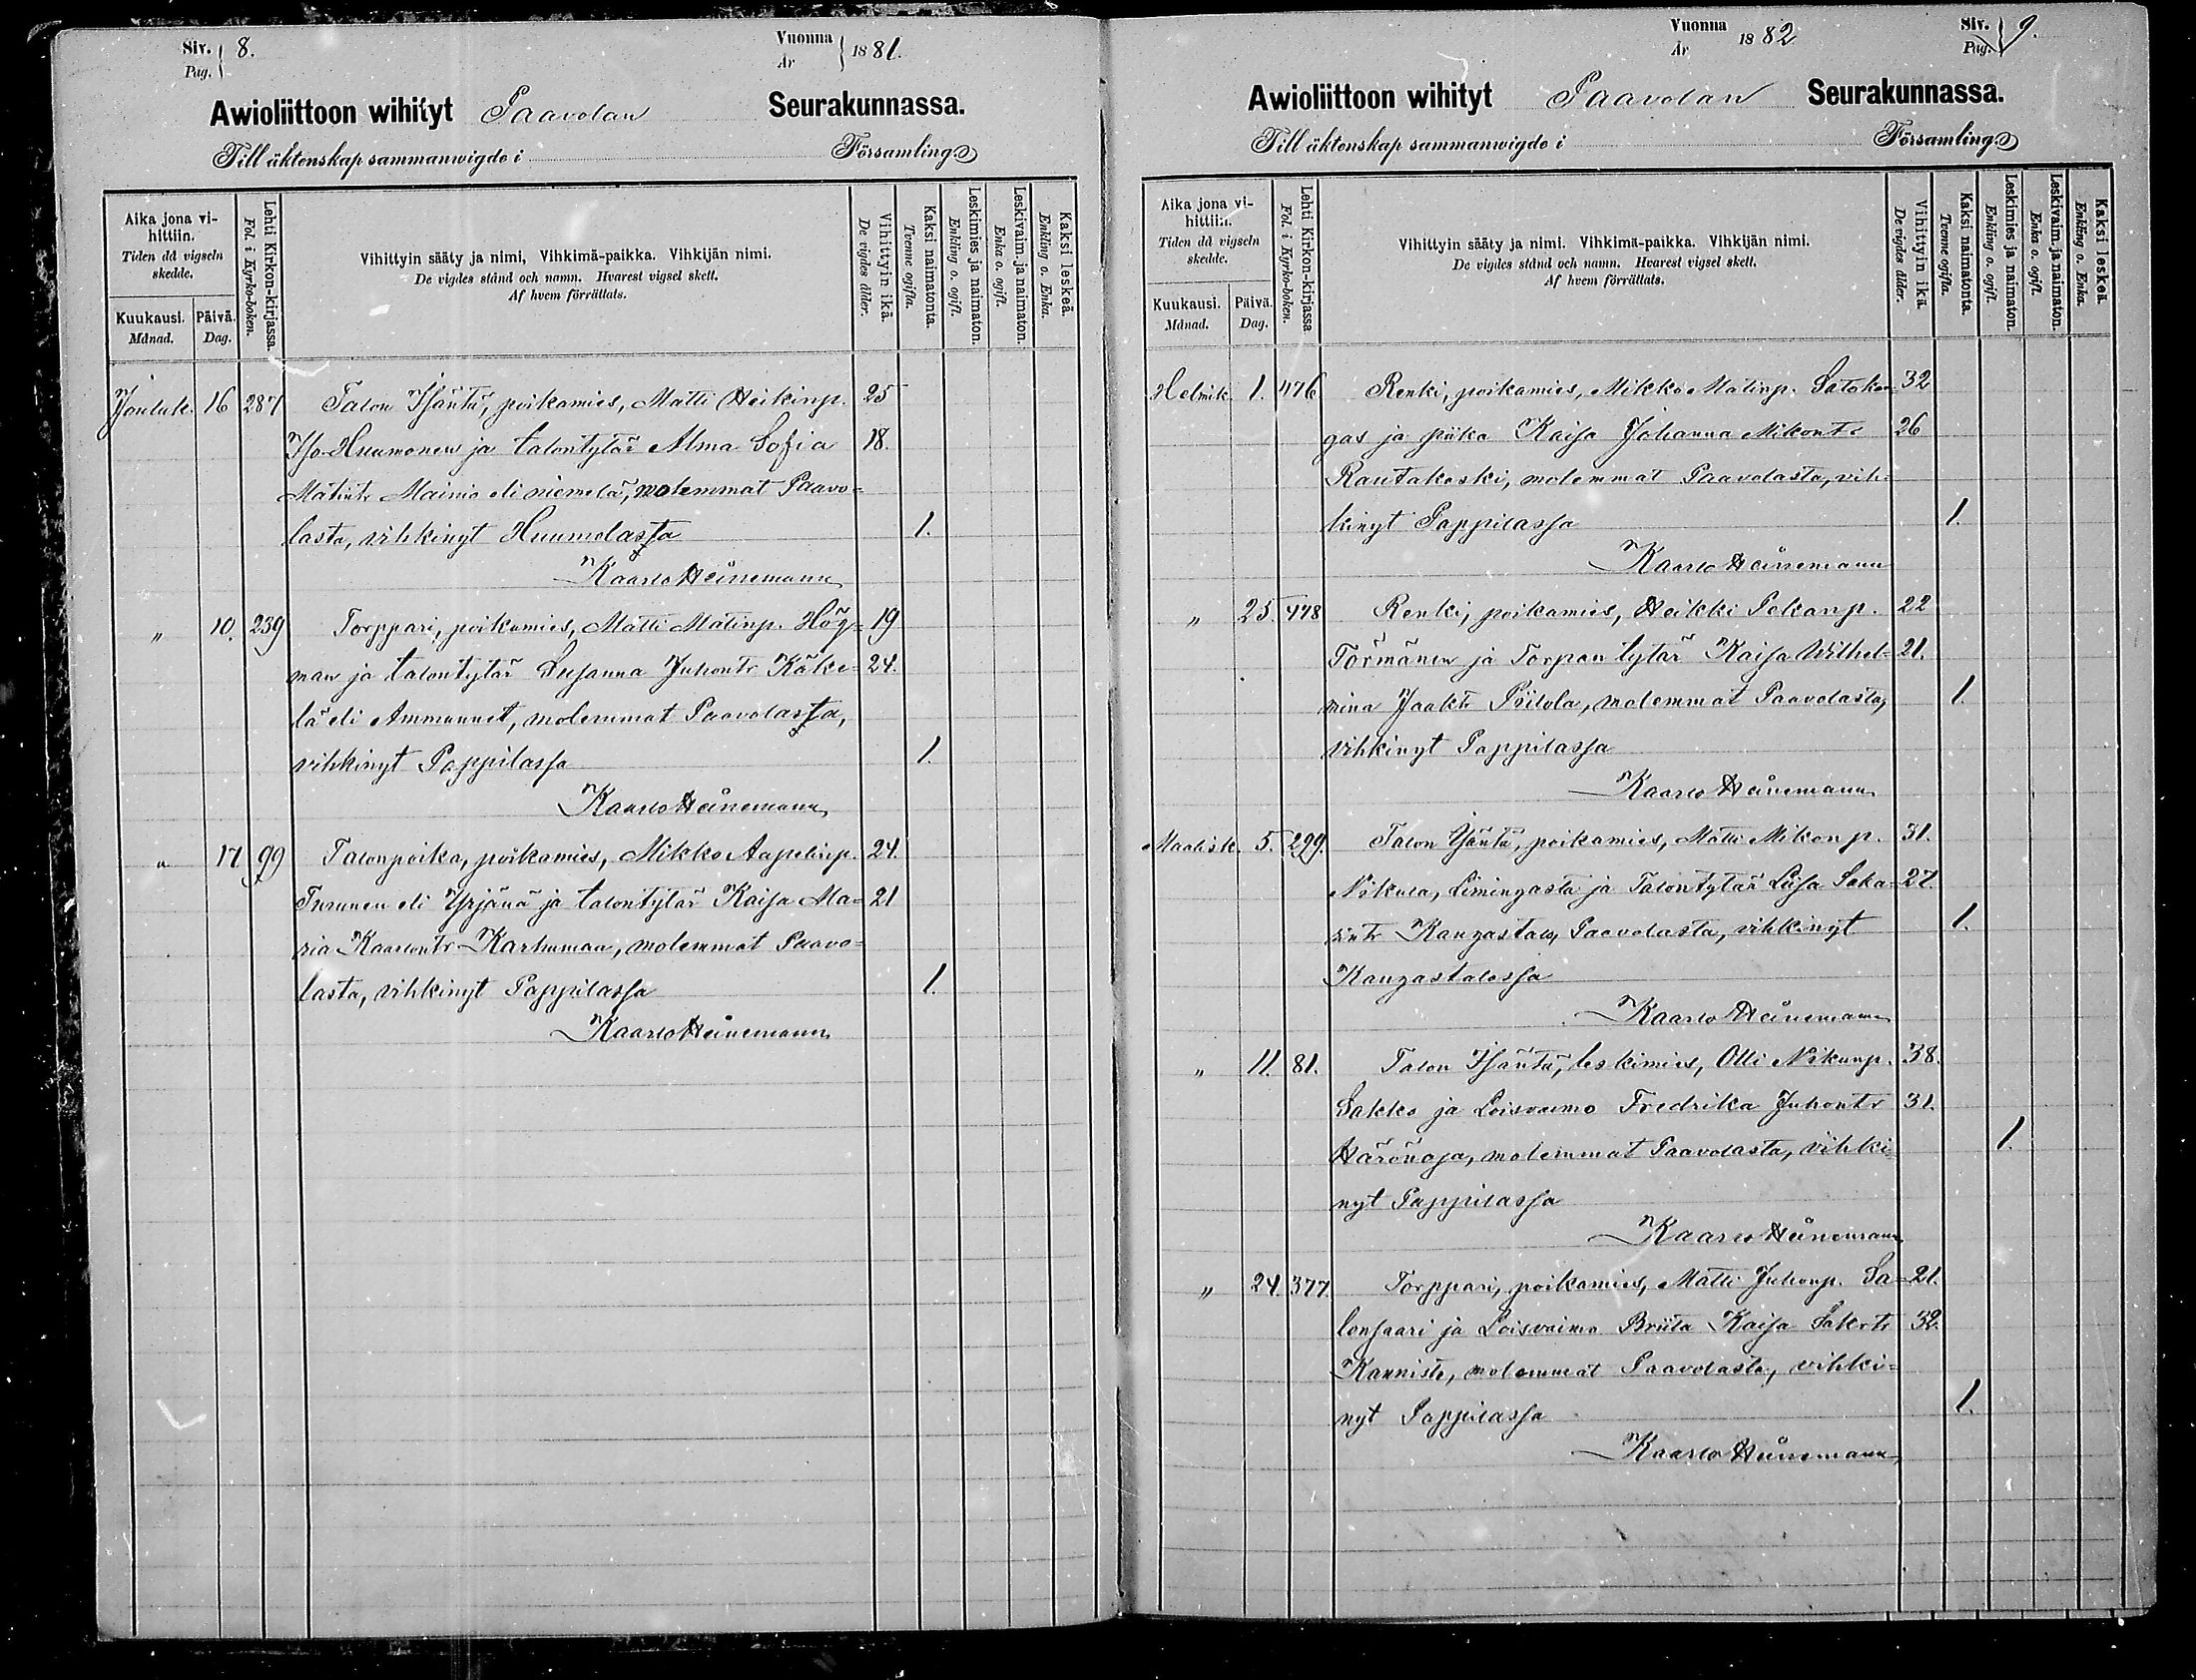 Siv. 8.
Pag.
Vuonna 1881.
År
Awioliittoon wihityt Paavolan Seurakunnassa.
Till äktenskap sammanwigde i Församling.
Aika jona vihittiin.
Tiden då vigseln skedde.
Kuukausi. Månad.
Päivä. Dag.
Lehti Kirkon-kirjassa.
Fol. i Kyrko-boken.
Vihittyin sääty ja nimi, Vihkimä-paikka. Vihkijän nimi.
De vigdes stånd och namn. Hvarest vigsel skett.
Af hvem förrättats.
Vihittyin ikä.
De vigdes ålder.
Kaksi naimatonta.
Tvenne ogifta.
Leskimies ja naimaton.
Enkling o. ogift.
Leskivaim. ja naimaton.
Enka o. ogift.
Kaksi leskeä.
Enkling o. Enka.
Jouluk. 16 287 Talon Isäntä, poikamies, Matti Heikinp. 25
Iso-Huumonen ja talontytär Alma Sofia 18.
Matintr Mainio eli niemelä, molemmat Paavo=
lasta, vihkinyt Huumolassa 1.
Kaarlo Heinemann
„ 10. 239 Torppari, poikamies, Matti Matinp. Hög= 19
man ja talontytär Susanna Juhontr Käke= 24.
lä eli Ammunnet, molemmat Paavolasta,
vihkinyt Pappilassa 1.
Kaarlo Heinemann
„ 17 99 Talonpoika, poikamies, Mikko Aapelinp. 24.
Turunen eli Yrjänä ja talontytär Kaisa Ma= 21
ria Kaarlontr Karhumaa, molemmat Paavo=
lasta, vihkinyt Pappilassa 1.
Kaarlo Heinemann
Vuonna 1882
År
Siv. 9.
Pag.
Awioliittoon wihityt Paavolan Seurakunnassa.
Till äktenskap sammanwigde i Församling.
Aika jona vihittiin.
Tiden då vigseln skedde.
Kuukausi. Månad.
Päivä. Dag.
Lehti Kirkon-kirjassa
Fol. i Kyrko-boken.
Vihittyin sääty ja nimi. Vihkimä-paikka. Vihkijän nimi.
De vigdes stånd och namn. Hvarest vigsel skett.
Af hvem förrättats.
Vihittyin ikä.
De vigdes ålder.
Kaksi naimatonta.
Tvenne ogifta.
Leskimies ja naimaton.
Enkling o. ogift.
Leskivaim. ja naimaton.
Enka o. ogift.
Kaksi leskeä.
Enkling o. Enka.
Helmik. 1. 476 Renki, poikamies, Mikko Matinp. Satokan= 32
gas ja piika Kaisa Johanna Mikontr 26
Rautakoski, molemmat Paavolasta, vih=
kinyt Pappilassa 1.
Kaarlo Heinemann
„ 25. 478 Renki, poikamies, Heikki Pekanp. 22
Törmänen ja Torpan tytär Kaisa Wilhel= 21.
mina Jaaktr Piilola, molemmat Paavolasta, 1.
vihkinyt Pappilassa
Kaarlo Heinemann
Maalisk. 5. 299. Talon Isäntä, poikamies, Matti Mikonp. 31.
Nikula, Limingasta ja Talontytär Liisa Saka= 27.
rintr Kangastalo, Paavolasta, vihkinyt 1.
Kangastalossa
Kaarlo Heinemann
„ 11. 81. Talon Isäntä, leskimies, Olli Nikunp. 38.
Sakko ja Loisvaimo Fredrika Juhontr 31.
Härönoja, molemmat Paavolasta, vihki= 1.
nyt Pappilassa
Kaarlo Heinemann
„ 24. 377. Torppari, poikamies, Matti Juhonp. Sa= 21.
lonsaari ja Loisvaimo Briita Kaisa Sakrtr 32.
Kanniste, molemmat Paavolasta, vihki=
nyt Pappilassa 1.
Kaarlo Heinemann